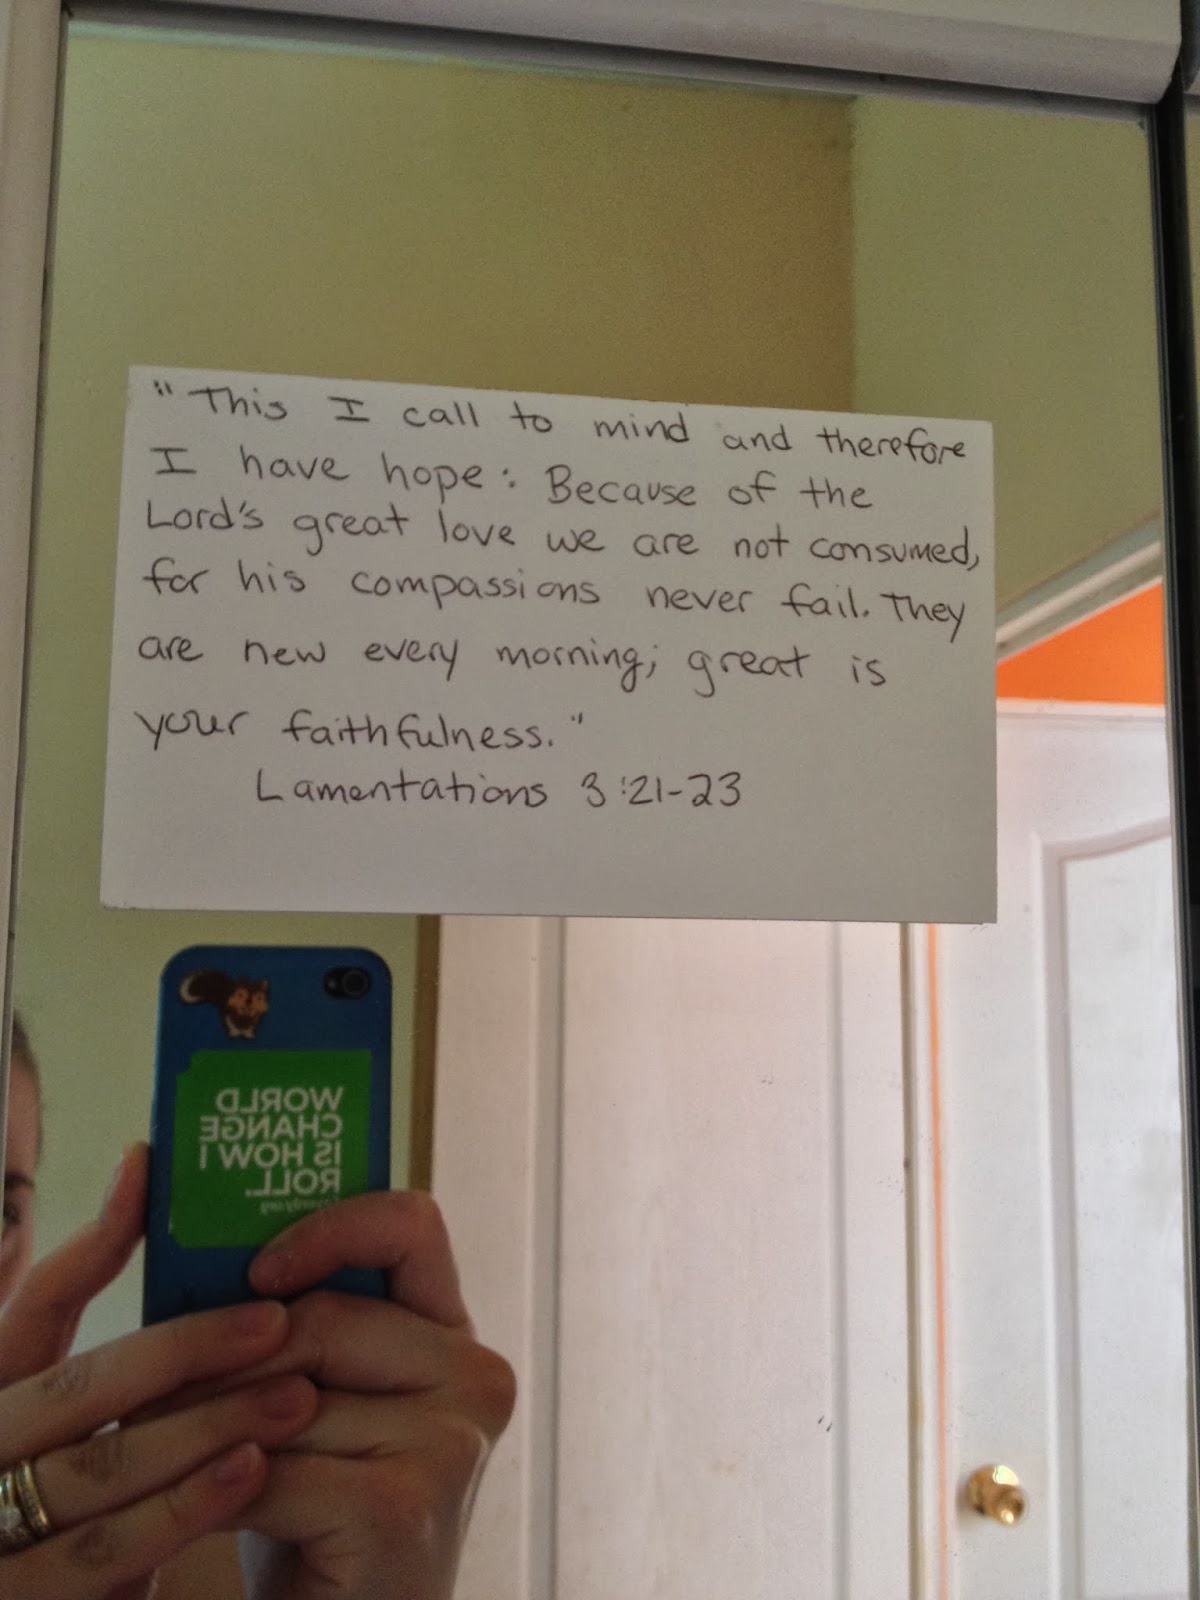 "This I call to mind and therefore
I have hope: Because of the
Lord's great love we are not consumed,
for his compassions never fail. They
are new every morning; great is
your faithfulness."
Lamentations 3:21-23
WORLD
CHANGE
IS HOW I
ROLL.